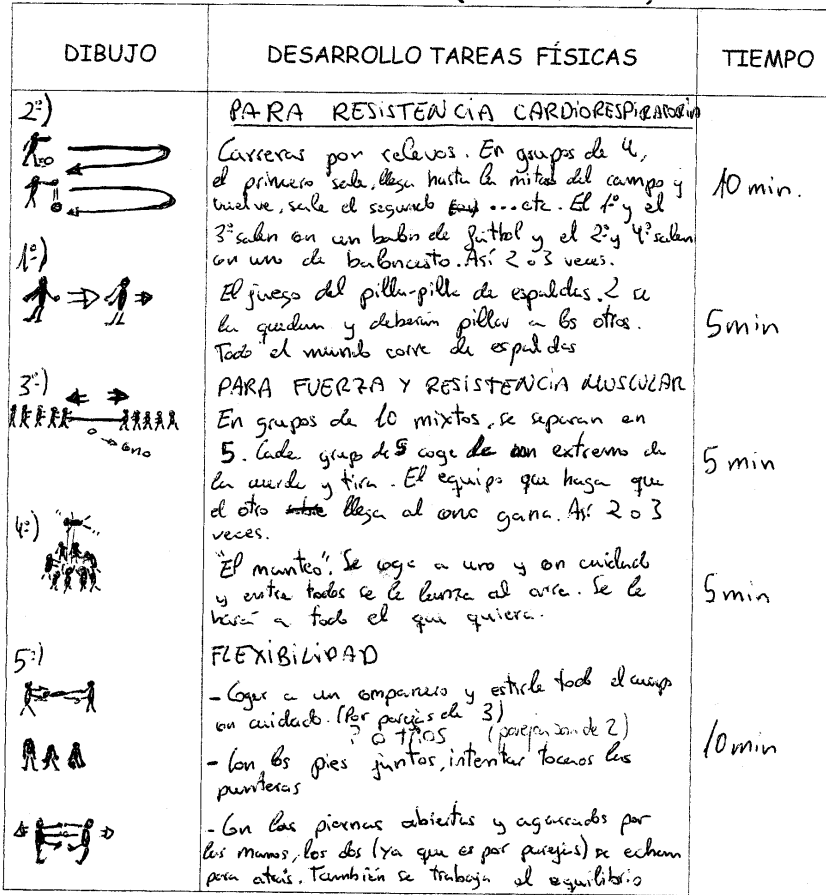 DIBUJO
DESARROLLO TAREAS FÍSICAS
TIEMPO
2º)
PARA RESISTENCIA CARDIORESPIRATORIA
Carreras por relevos. En grupos de 4,
el primero sale, llega hasta la mitad del campo y
vuelve, sale el segundo ... etc. El 1º y el
3º salen con un balón de fútbol y el 2º y 4º salen
con uno de baloncesto. Así 2 o 3 veces.
10 min.
1º)
El juego del pilla-pilla de espaldas. 2 se
la quedan y deberán pillar a los otros.
Todo el mundo corre de espaldas
5 min
3º)
cono
PARA FUERZA Y RESISTENCIA MUSCULAR
En grupos de 10 mixtos, se separan en
5. Cada grupo de 5 coge de un extremo de
la cuerda y tira. El equipo que haga que
el otro llega al cono gana. Así 2 o 3
veces.
5 min
4º)
"El manteo". Se coge a uno y con cuidado
y entre todos se le lanza al aire. Se le
hará a todo el que quiera.
5 min
5º)
FLEXIBILIDAD
- Coger a un compañero y estirle todo el cuerpo
con cuidado. (Por parejas de 3)
? O TRÍOS (parejas son de 2)
- Con los pies juntos, intentar tocarnos las
punteras
- Con las piernas abiertas y agarrados por
las manos, los dos (ya que es por parejas) se echan
para atrás. También se trabaja el equilibrio
10 min